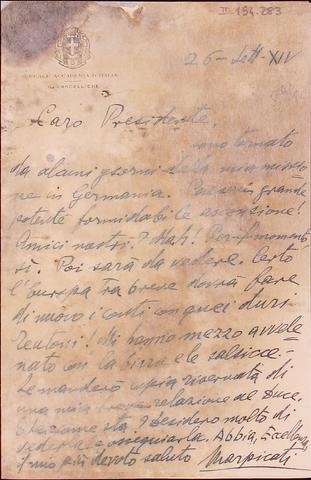 II 194.283
REALE ACCADEMIA D'ITALIA
IL CANCELLIERE
26-Sett-XIV
Caro Presidente,
sono tornato
da alcuni giorni dalla mia missio
ne in Germania. Paese in grande
potente formidabile ascensione!
Amici nostri? Mah! Per il momento
sì. Poi sarà da vedere. Certo
l'Europa tra breve dovrà fare
di nuovo i conti con quei duri
Teutoni! Mi hanno mezzo avvele
nato con la birra e le salsicce.-
Le manderò copia riservata di
una mia relazione al Duce.
sta? Desidero molto di
vederla e ossequiarla. Abbia, Eccellenza,
il mio più devoto saluto Marpicati